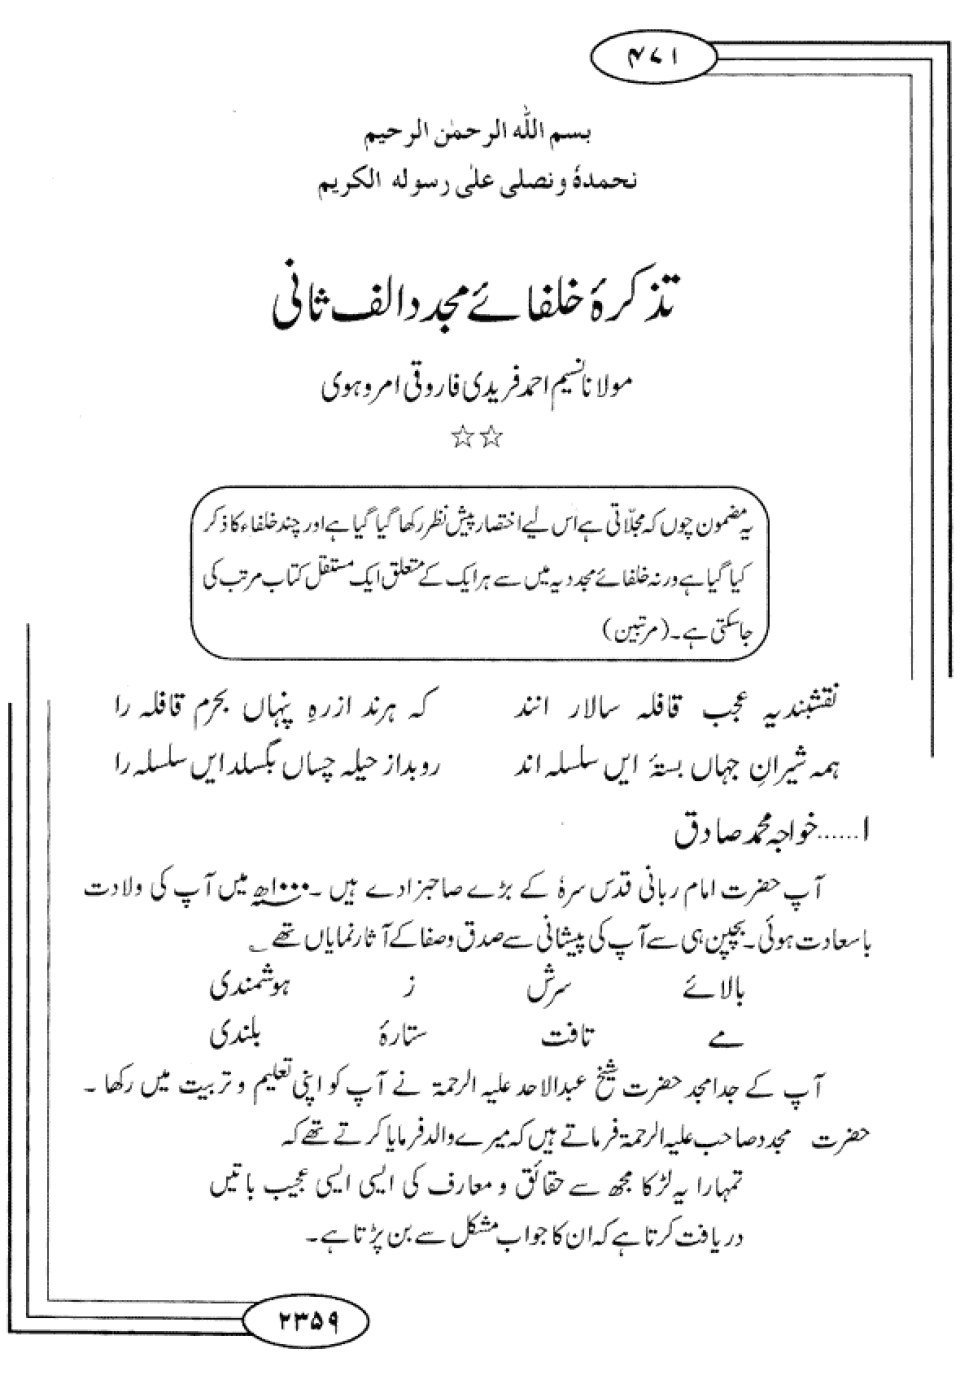 ۴۷۱
بسم اللہ الرحمٰن الرحیم
نحمدہٗ ونصلی علیٰ رسولہ الکریم
تذکرۂ خلفائے مجدد الف ثانی
مولانا نسیم احمد فریدی فاروقی امروہوی
☆☆
یہ مضمون چوں کہ مجلّاتی ہے اس لیے اختصار پیش نظر رکھا گیا گیا ہے اور چند خلفاء کا ذکر
کیا گیا ہے ورنہ خلفائے مجددیہ میں سے ہر ایک کے متعلق ایک مستقل کتاب مرتب کی
جا سکتی ہے۔ (مرتبین)
نقشبندیہ عجب قافلہ سالار انند کہ ہرند ازرہِ پنہاں بحرم قافلہ را
ہمہ شیرانِ جہاں بستۂ ایں سلسلہ اند روبداز حیلہ چساں بگسلد ایں سلسلہ را
۱......خواجہ محمد صادق
آپ حضرت امام ربانی قدس سرہٗ کے بڑے صاحبزادے ہیں۔ ۱۰۰۰ھ میں آپ کی ولادت
باسعادت ہوئی۔ بچپن ہی سے آپ کی پیشانی سے صدق وصفا کے آثار نمایاں تھے ؎
بالائے سرش ز ہوشمندی
مے تافت ستارۂ بلندی
آپ کے جدامجد حضرت شیخ عبدالاحد علیہ الرحمۃ نے آپ کو اپنی تعلیم و تربیت میں رکھا۔
حضرت مجدد صاحب علیہ الرحمۃ فرماتے ہیں کہ میرے والد فرمایا کرتے تھے کہ
تمہارا یہ لڑکا مجھ سے حقائق و معارف کی ایسی ایسی عجیب باتیں
دریافت کرتا ہے کہ ان کا جواب مشکل سے بن پڑتا ہے۔
۲۳۵۹